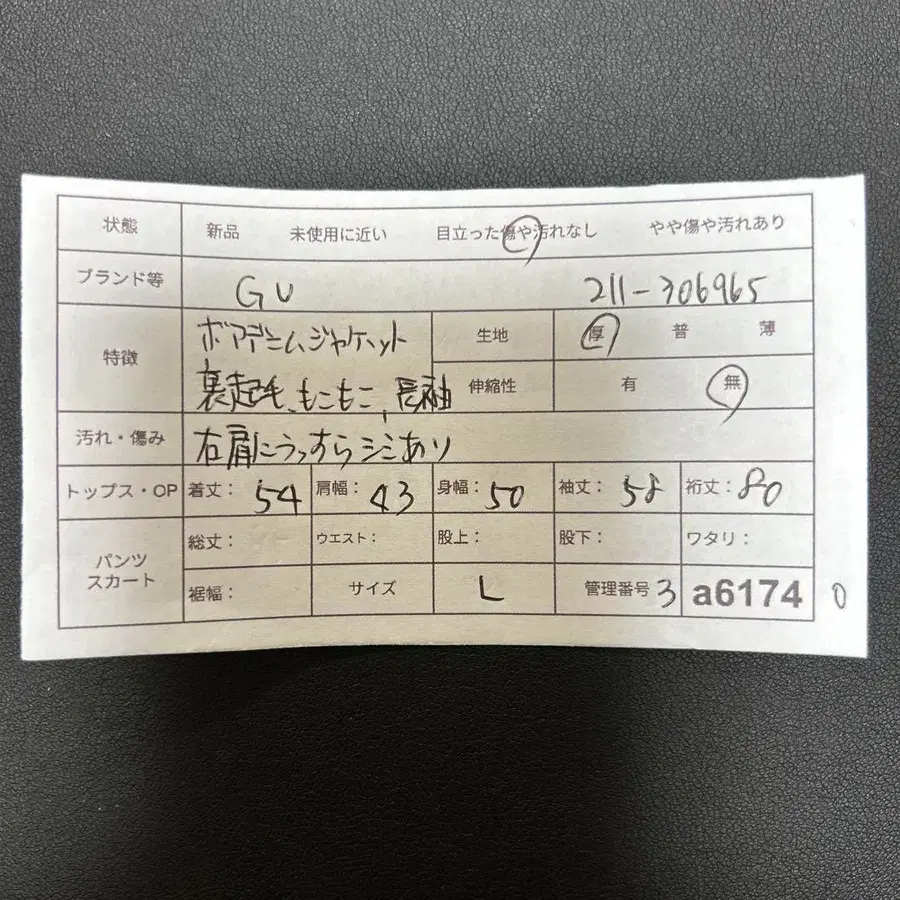 状態 新品 未使用に近い 目立った傷や汚れなし やや傷や汚れあり
ブランド等 GU 211-306965
特徴 ボアデニムジャケット 生地 厚 普 薄
裏起毛、もこもこ、長袖 伸縮性 有 無
汚れ・傷み 右肩にうっすらシミあり
トップス・OP 着丈: 54 肩幅: 43 身幅: 50 袖丈: 58 裄丈: 80
パンツ スカート 総丈: ウエスト: 股上: 股下: ワタリ:
裾幅: サイズ L 管理番号 3 a6174 0